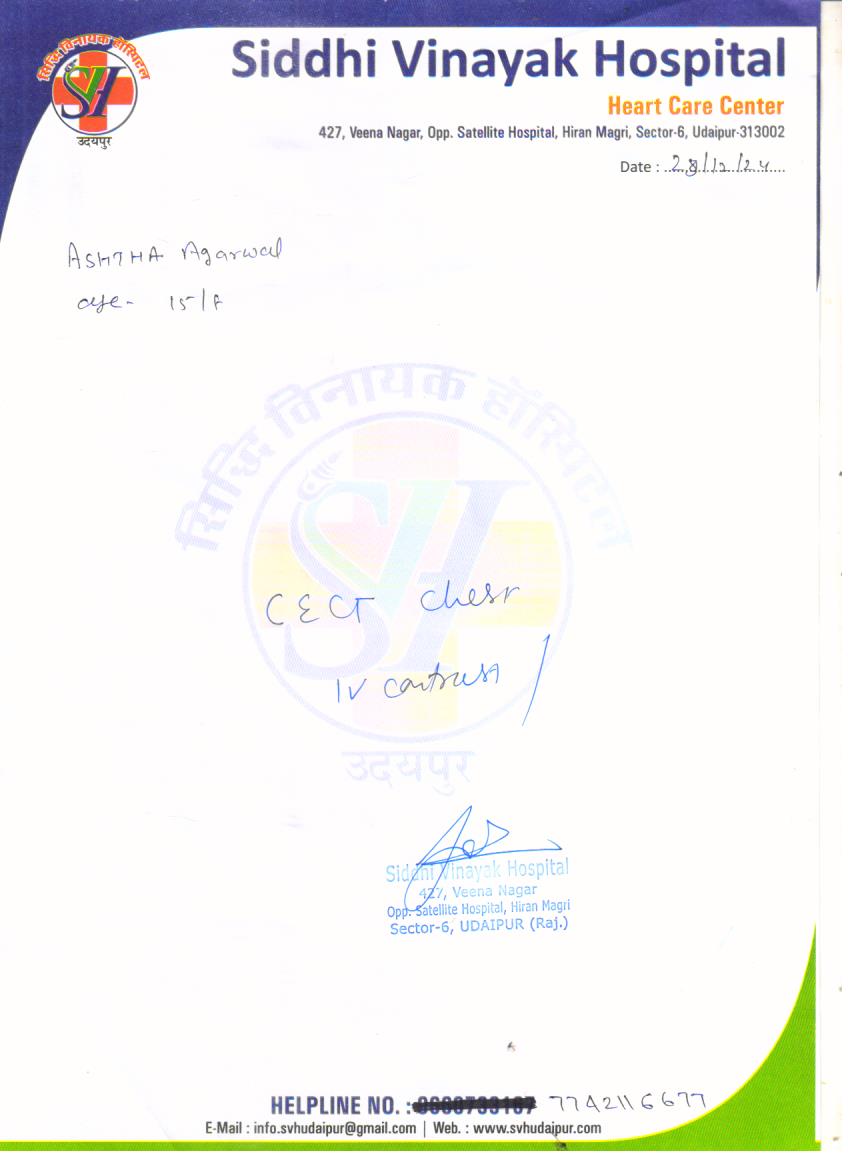 सिद्धि विनायक हॉस्पिटल
SVH
उदयपुर
Siddhi Vinayak Hospital
Heart Care Center
427, Veena Nagar, Opp. Satellite Hospital, Hiran Magri, Sector-6, Udaipur-313002
Date : 28/12/24
ASHTHA Agarwal
age- 15/F
सिद्धि विनायक हॉस्पिटल
SVH
CECT Chest
IV contrast
उदयपुर
Siddhi Vinayak Hospital
427, Veena Nagar
Opp. Satellite Hospital, Hiran Magri
Sector-6, UDAIPUR (Raj.)
HELPLINE NO. : 7742116677
E-Mail : info.svhudaipur@gmail.com | Web. : www.svhudaipur.com